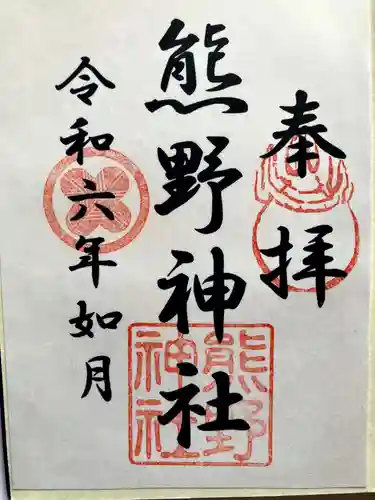 奉拝
熊野神社
令和六年如月
熊野
神社